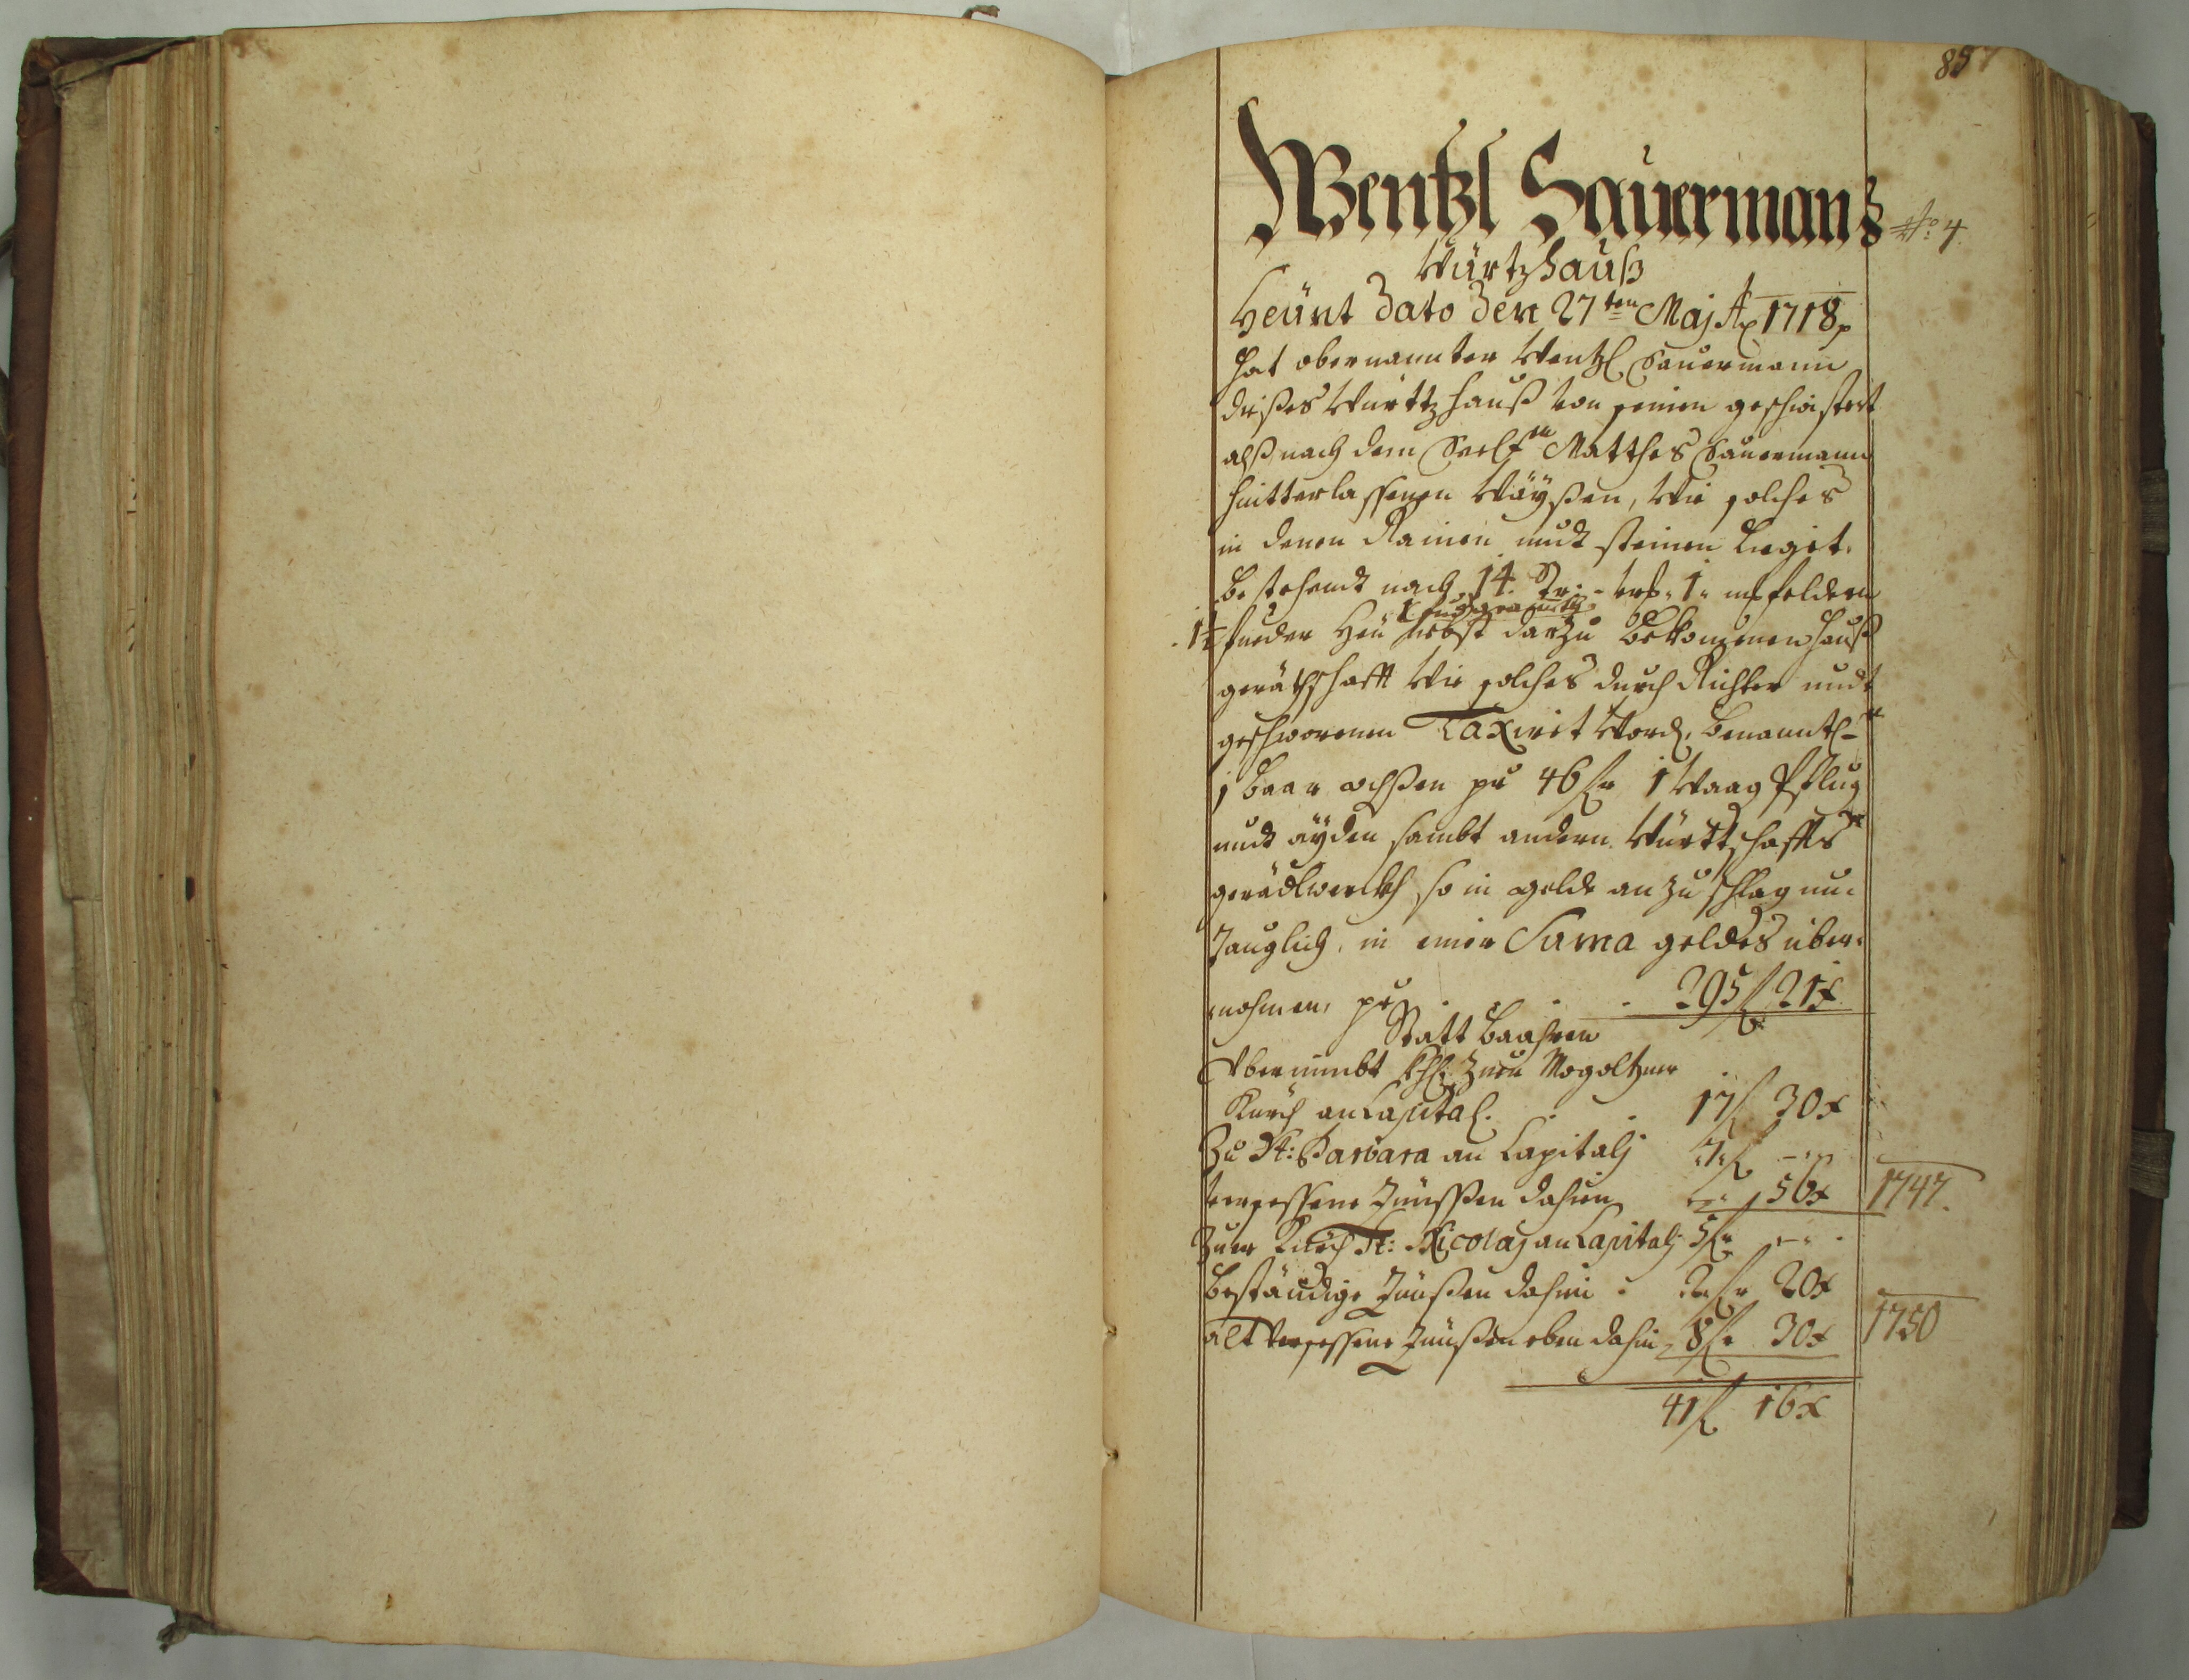 857
Wentzl Sauermans
No: 4
Würtzhauß
Heünt Dato Den 27ten Maj Ao 1718
hat obernannter Wentzl Sauermann
dießes Württzhauß von seinen geschwistert
alß nach dem Seel: Matthes Sauermann
hintterlassenen Wäyßen, Wie solches
in denen Rainen undt steinen lieget,
bestehendt nach 14 Str: 1 feldern
1½ fueder Heü nebst darzu bekommenen Hauß
geräthschafft Wie solches durch Richter undt
geschworenen Taxiret Word. benanntl:
1 Baar ochßen pr 46 fl 1 Waag Pflug
undt äyden sambt andern Württschaffts
gerädtwerckh, so in gelde anzuschlag un:
tauglich, in einer Suma geldes über:
nohmen, pr 295 fl 21 x
Statt Baahren
Übernimbt Zur Mogoltzner
Kürch an Capital. 17 fl 30 x
Zu St: Barbara an Capitalj 7 fl
versessene Zünßen dahin 56 x 1747.
Zur Kürch St: Nicolaj an Capitalj 5 fl
beständige Zünßen dahin 2 fl 20 x
alt versessene Zünßen eben dahin 8 fl 30 x 1750
41 fl 16 x